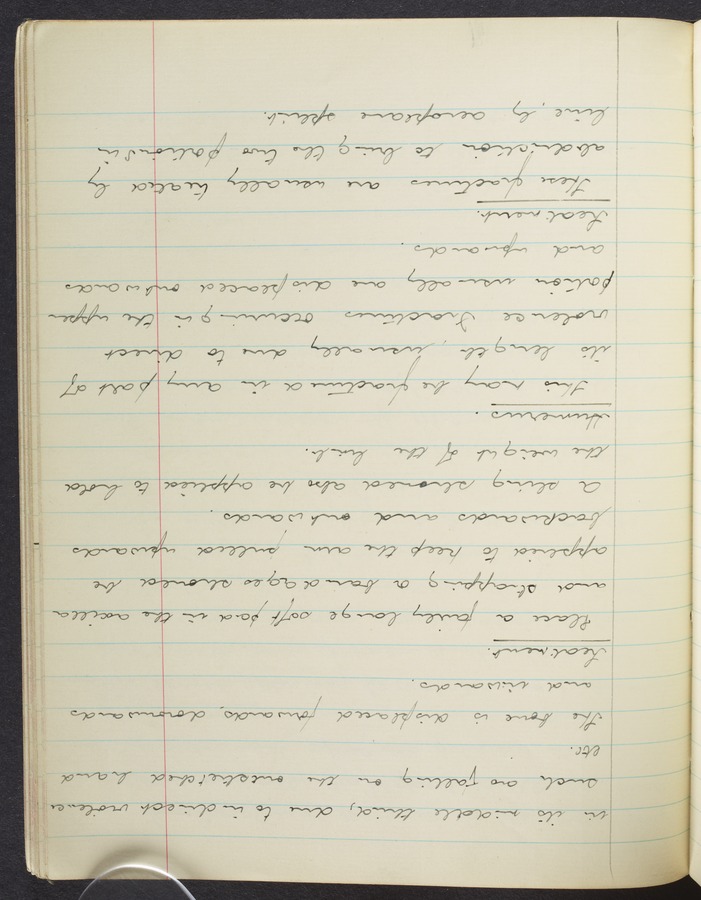 in its middle third, due to indirect violence
such as falling on the outstretched hand
etc.
The bone is displaced forwards, downwards
and inwards.
Treatment.
Place a fairly large soft pad in the axilla
and strapping or bandages should be
applied to keep the arm pulled upwards
backwards and outwards.
A sling should also be applied to hold
the weight of the limb.
Humerus.
This may be fractured in any part of
its length, usually due to direct
violence Fractures occurring in the upper
portion usually are displaced outwards
and upwards.
Treatment.
These fractures are usually treated by
abduction to bring the two portions in
line, by aeroplane splint.